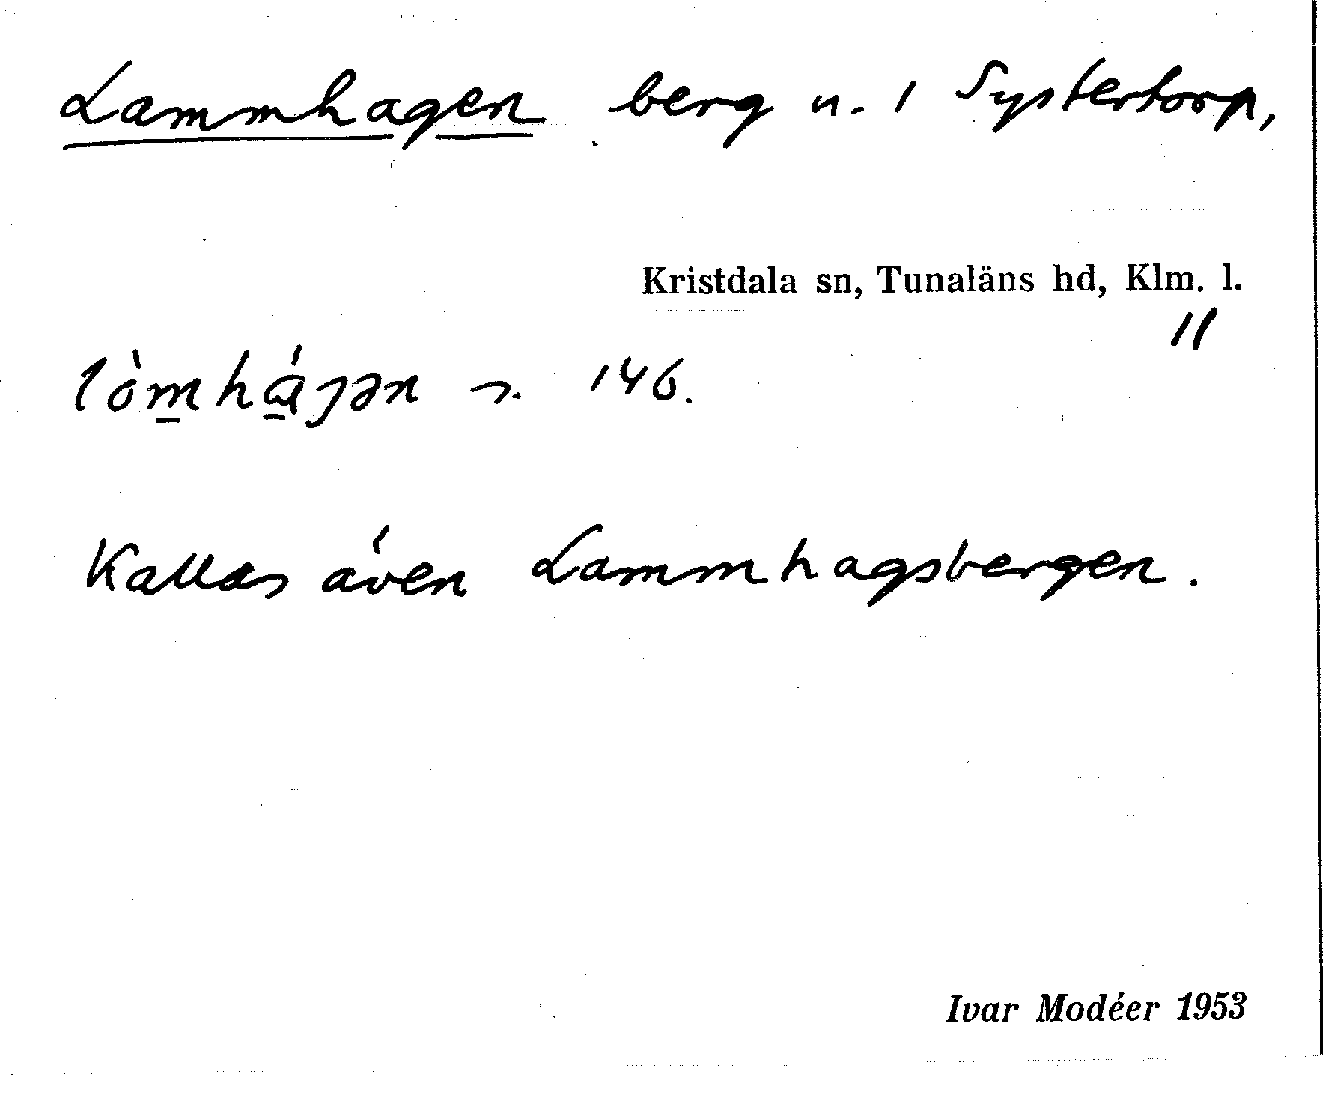 Lammhagen berg u. 1 Systertorp,
Kristdala sn, Tunaläns hd, Klm. l.
11
146.
Kallas även Lammhagsbergen.
Ivar Modéer 1953